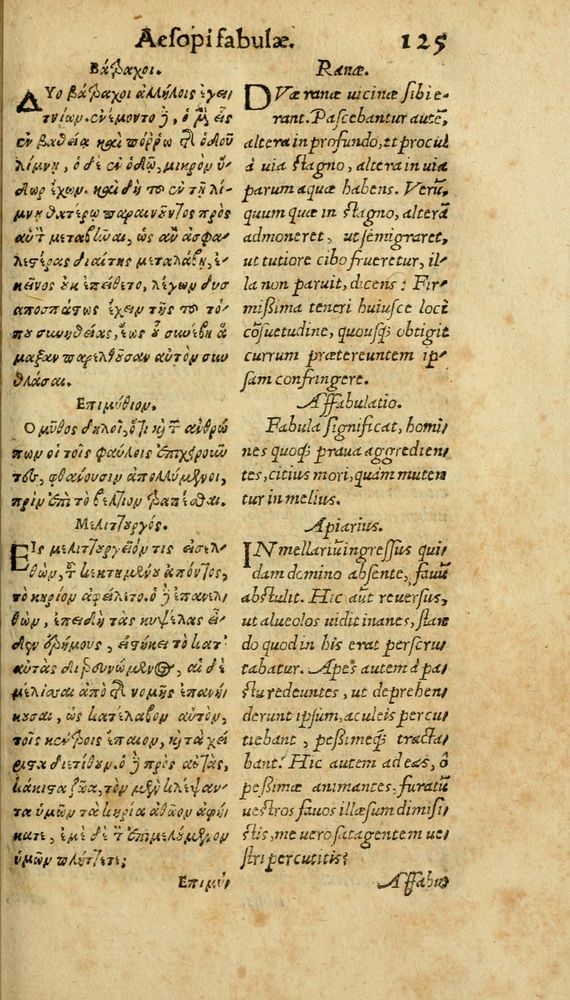 Aesopi fabulæ. 125
Βάτραχοι.
ΔΥο βάτραχοι ἀλλήλοις ἐγει/
τνίων. ἐνέμοντο δὲ, ὁ μὲν εἷς
ἐν βαθείᾳ καὶ πόῤῥω τῆς ὁδοῦ
λίμνῃ, ὁ δὲ ἐν ὁδῷ, μικρὸν ὕ/
δωρ ἔχων. καὶ δὴ τοῦ ἐν τῇ λί/
μνῃ θατέρῳ παραινοῦντος πρὸς
αὐτὸν μεταβῆναι, ὡς ἂν ἀσφα/
λεστέρας διαίτης μεταλάβῃ, ἐ/
κεῖνος οὐκ ἐπείθετο, λέγων δυσ
αποσπάστως ἔχειν τῆς τοῦ τό/
που συνηθείας, ἕως οὗ συνέβη ἅ
μαξαν παρελθοῦσαν αὐτὸν συν
θλάσαι.
Επιμύθιον.
Ο μῦθος δηλοῖ, ὅτι καὶ τῶν ἀνθρώ
πων οἱ τοῖς φαύλοις ἐπιχειροῦν
τες, φθάνουσιν ἀπολλύμενοι,
πρὶν ἐπὶ τὸ βέλτιον τραπέσθαι.
Μελιττουργός.
ΕΙς μελιττουργεῖόν τις εἰσελ/
θὼν, τοῦ κεκτημένου ἀπόντος,
τὸ κηρίον ἀφείλετο. ὁ δὲ ἐπανελ/
θὼν, ἐπειδὴ τὰς κυψέλας εἶ/
δεν ἐρήμους, εἱστήκει τὸ κατ'
αὐτὰς διερευνώμενος, αἱ δὲ
μέλισσαι ἀπὸ τῆς νομῆς ἐπανή/
κουσαι, ὡς κατέλαβον αὐτὸν,
τοῖς κέντροις ἔπαιον, καὶ τὰ χεί
ριστα διετίθουν. ὁ δὲ πρὸς αὐτάς,
κάκιστα ζῶα, τὸν μὲν κλέψαν/
τα ὑμῶν τὰ κηρία ἀθῶον ἀφή/
κατε, ἐμὲ δὲ τὸν ἐπιμελούμενον
ὑμῶν πλήττετε;
Επιμύ/
Ranæ.
DVæ ranæ uicinæ sibi e/
rant. Pascebantur autẽ,
altera in profundo, et procul
à uia stagno, altera in uia
parum aquæ habens. Verũ,
quum quæ in stagno, alterã
admoneret, ut semigraret,
ut tutiore cibo frueretur, il/
la non paruit, dicens: Fir/
mißima teneri huiusce loci
cõsuetudine, quousq́; obtigit
currum prætereuntem ip/
sam confringere.
Affabulatio.
Fabula significat, homi/
nes quoq́; praua aggredien/
tes, citius mori, quàm muten
tur in melius.
Apiarius.
IN mellariũ ingressus qui/
dam domino absente, fauũ
abstulit. Hic aũt reuersus,
ut alueolos uidit inanes, stan
do quod in his erat perscru/
tabatur. Apes autem à pa/
stu redeuntes, ut deprehen/
derunt ipsum, aculeis percu
tiebant, peßimeq́; tracta/
bant. Hic autem ad eas, ô
peßimæ animantes, furatũ
uestros fauos illæsum dimisi/
stis, me uero satagentem ue/
stri percutitis?
Affabu/